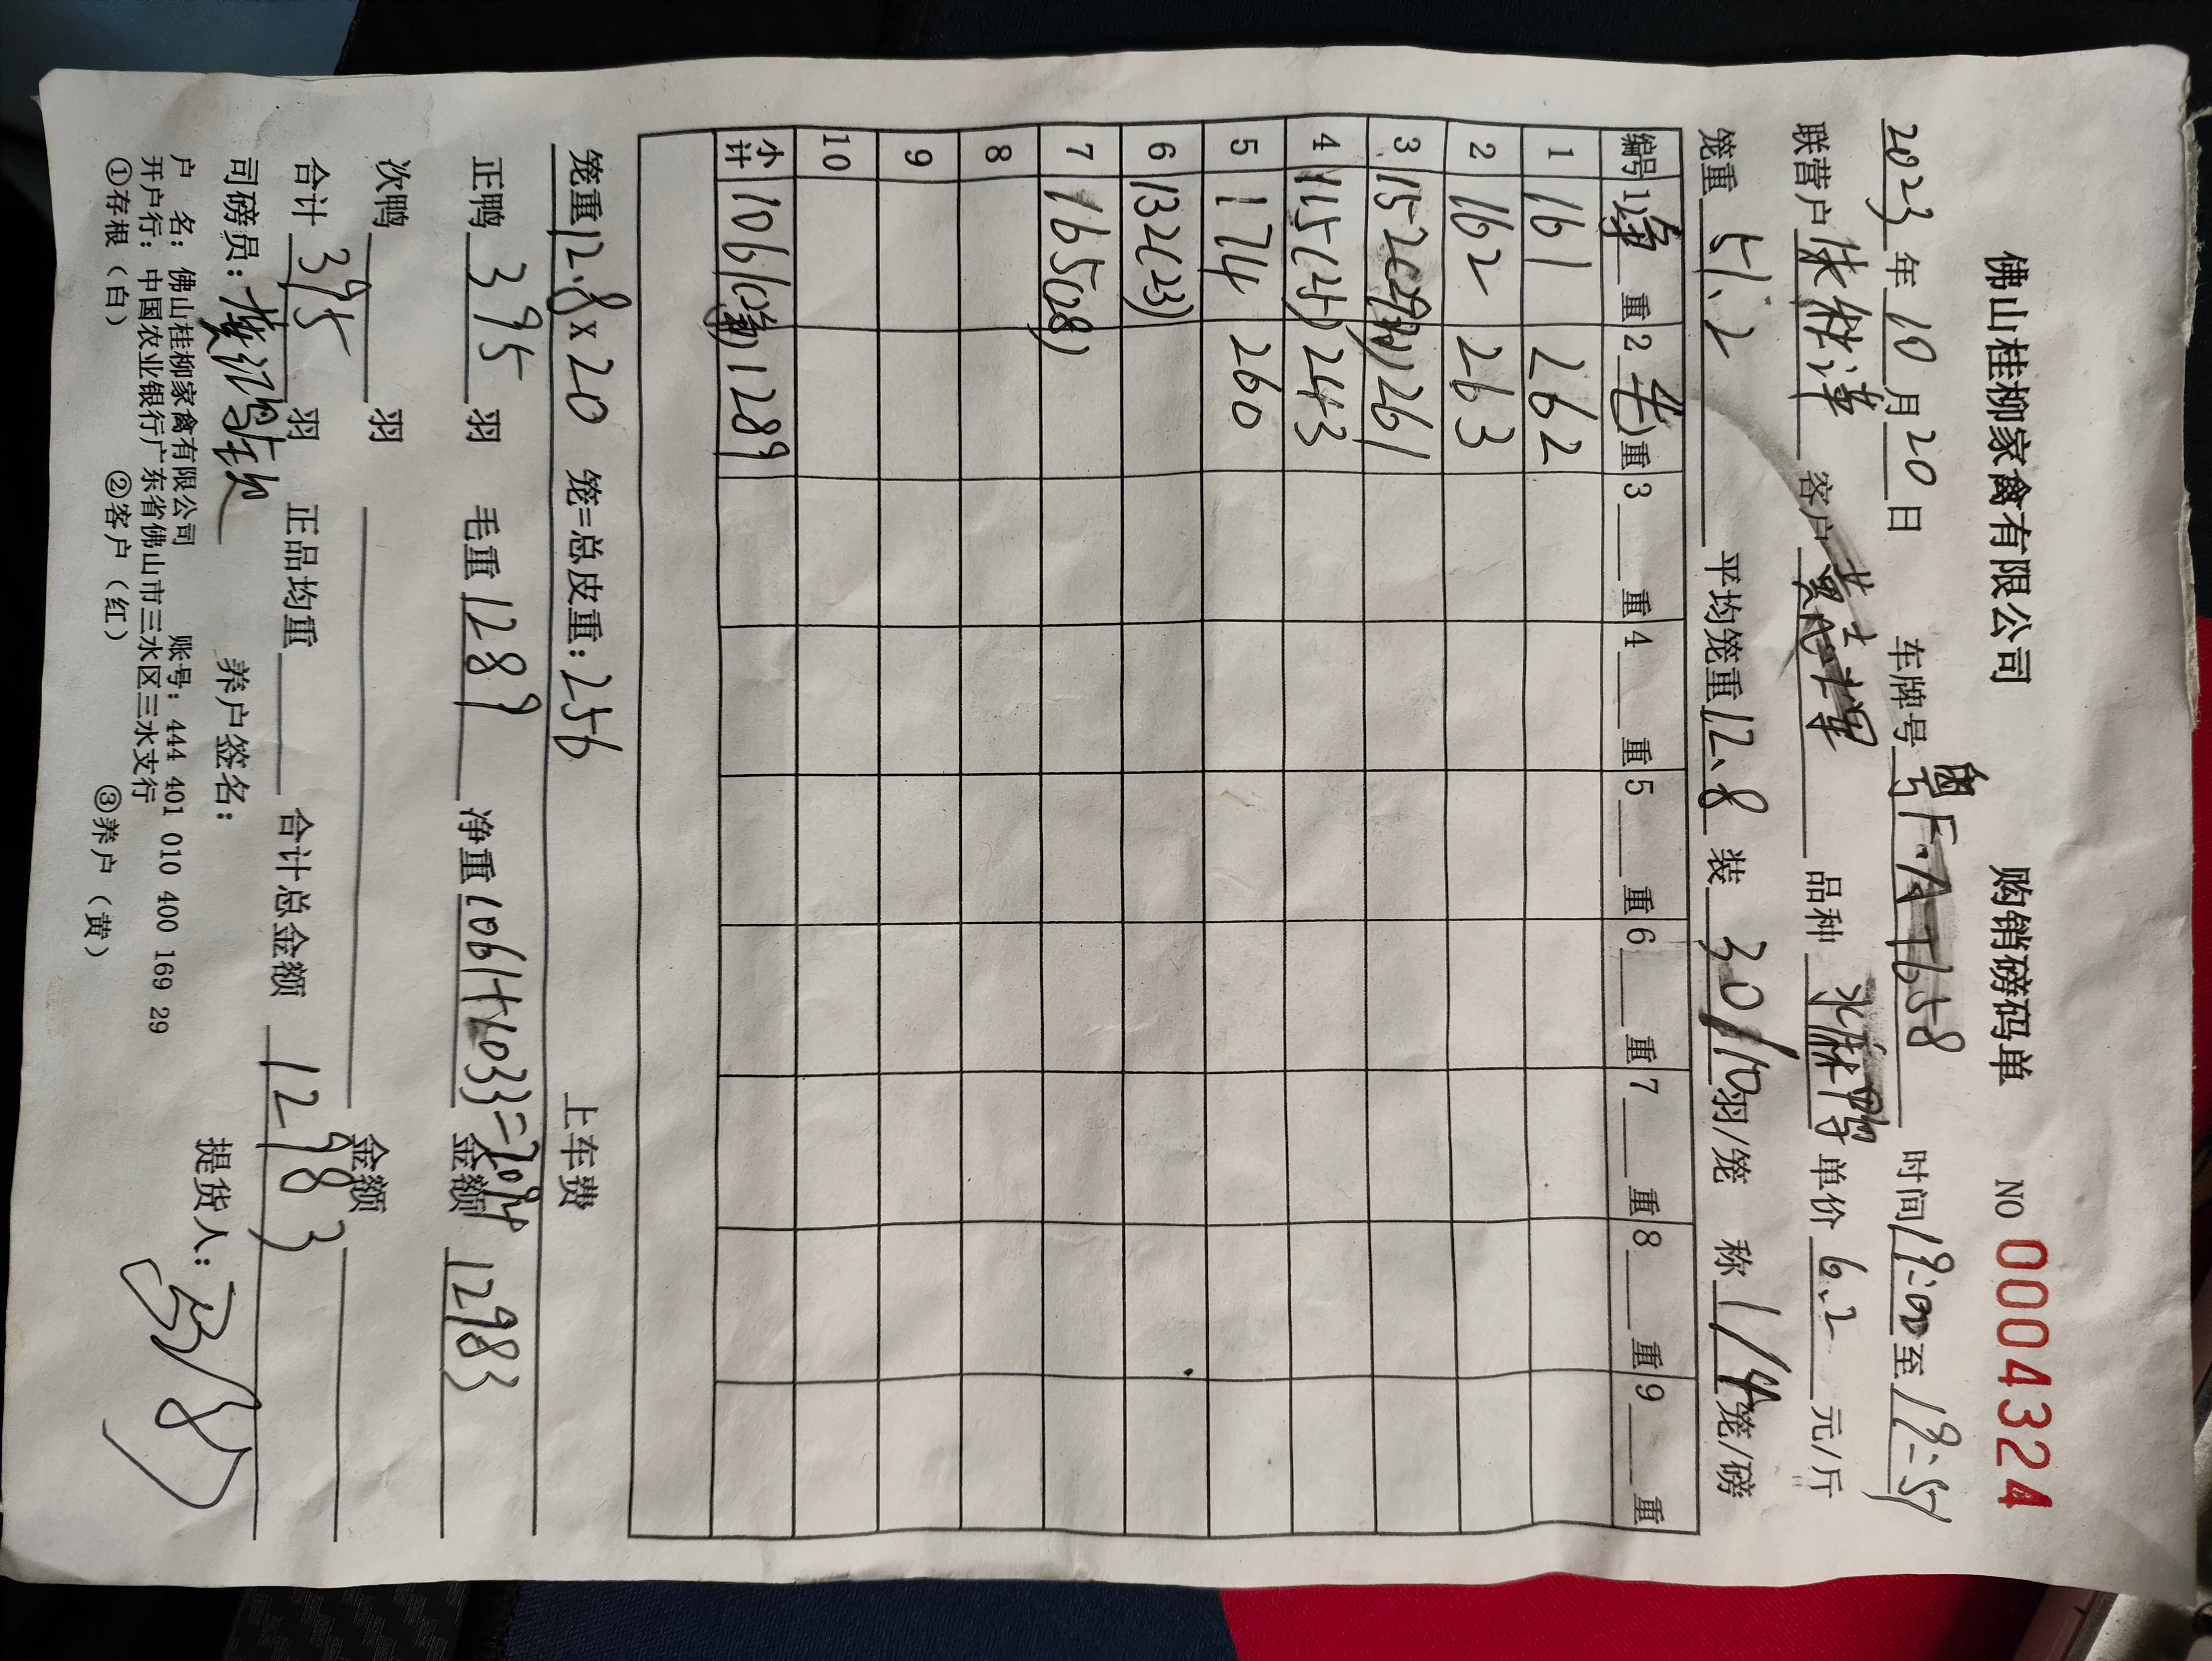 佛山桂柳家禽有限公司 购销磅码单 NO 0004324
2023年10月20日 车牌号粤F·A7658 时间19:00至19:57
联营户 客户黄志辉 品种水麻鸭 单价6.2元/斤
笼重51.2 平均笼重12.8 装30/10羽/笼 称1/4笼/磅
编号 1净重 2毛重 3重 4重 5重 6重 7重 8重 9重
1 161 262
2 162 263
3 152(29) 261
4 115(25) 243
5 174 260
6 132(23)
7 165(28)
8
9
10
小计 1061(净) 1289
笼重12.8×20 笼=总皮重:256 上车费
正鸭395羽 毛重1289 净重1061+1033=2094 金额12983
次鸭羽 金额
合计395羽 正品均重 合计总金额12983
司磅员: 养户签名: 提货人:
户 名:佛山桂柳家禽有限公司 账号:444 401 010 400 169 29
开户行:中国农业银行广东省佛山市三水区三水支行
①存根(白) ②客户(红) ③养户(黄)